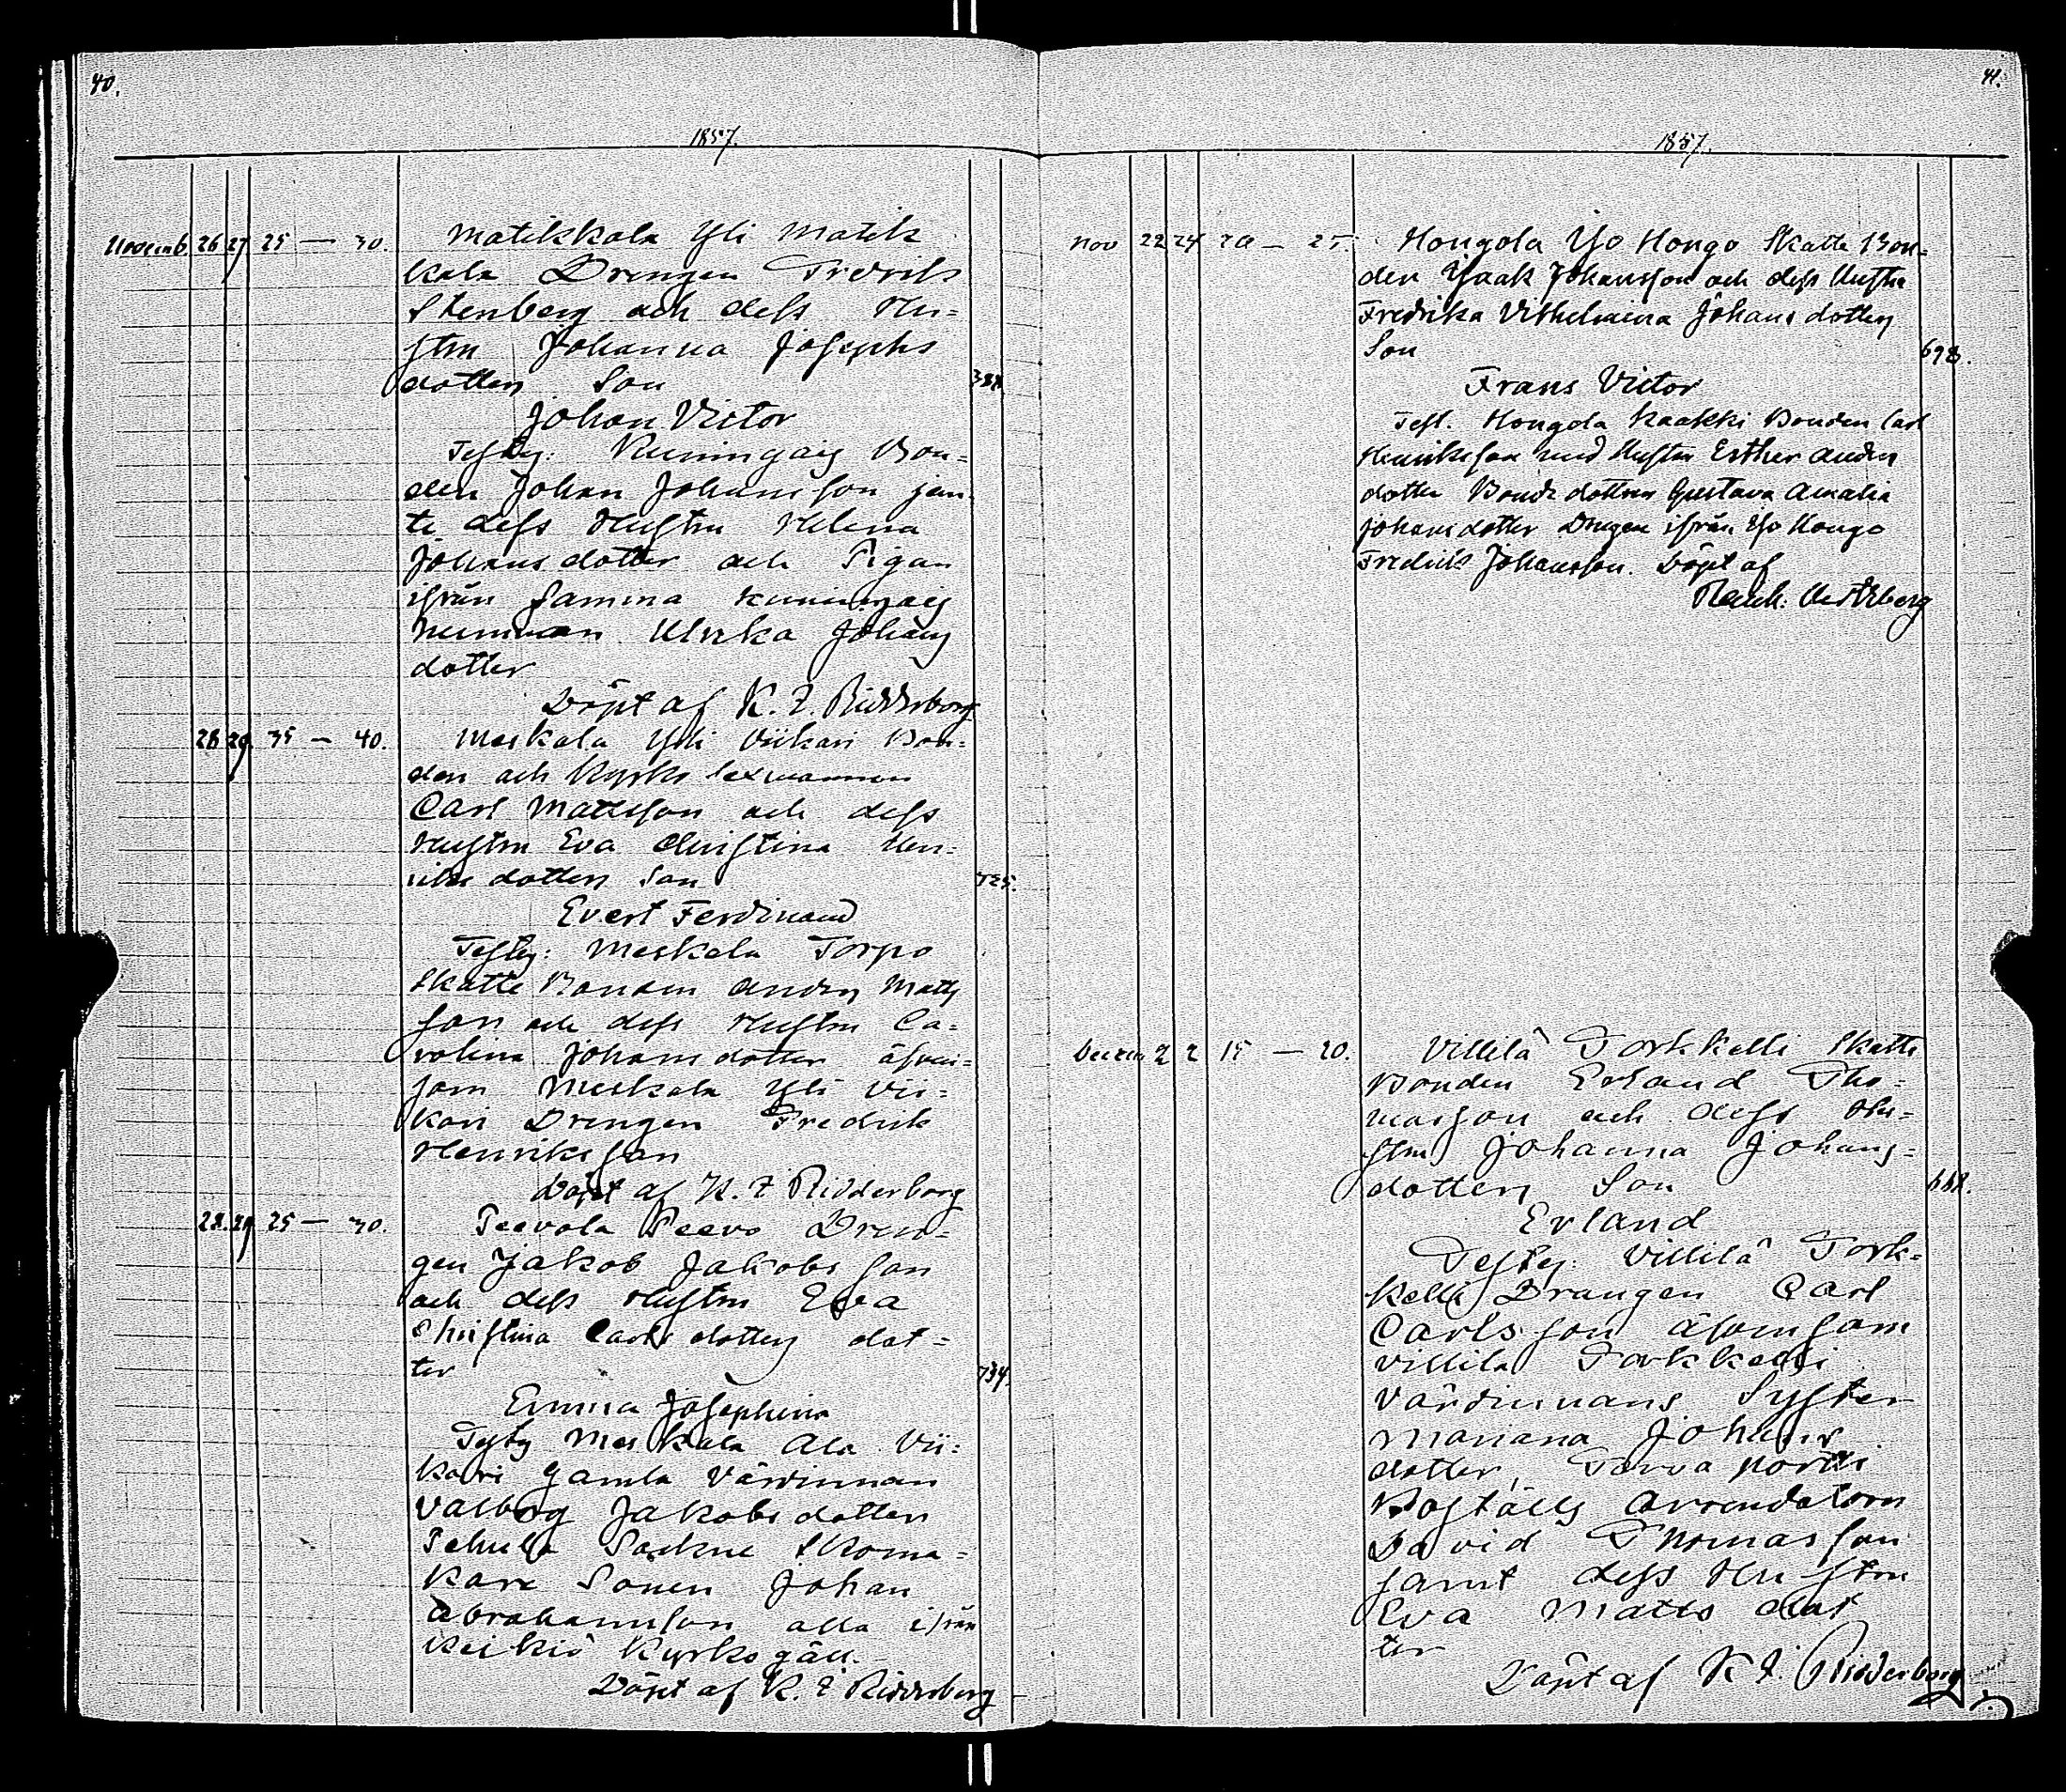 40.
1857.
Novemb. 26 27 25 — 30. Matikkala Yli Matik
kala Drengen Fredrik
Stenberg och dess Hu=
stru Johanna Josephs
dotters Son
Johan Victor
Testes: Kuningais Bon=
den Johan Johansson jem
te dess Hustru Helena
Johans dotter och Pigan
ifrån samma Kuningais
hemman Ulrika Johans
dotter
Döpt af K. F. Ridderborg
28 29 35 — 40. Meskala Yli Viikari Bon=
den och Kyrko sexmannen
Carl Mattsson och dess
Hustru Eva Christina Hen=
riks dotters Son 725.
Evert Ferdinand
Testes: Meskala Torpo
Skatte Bonden Anders Matts
son och dess Hustru Ca=
rolina Johans dotter äfven=
som Meskala Yli Vii=
kari Drengen Fredrik
Henriksson
Döpt af K. F. Ridderborg
28. 29 25 — 30. Peevola Peevo Dren=
gen Jakob Jakobs son
och dess Hustru Eva
Christina Carls dotters dot=
ter 734.
Emma Josephina
Testes Meskala Ala Vii=
kari gamla Värdinnan
Valborg Jakobs dotter
Skoma=
kare Sonen Johan
Abrahamsson alla ifrån
Keikiö Kyrkogäll.
Döpt af K. F. Ridderborg
41.
1857.
Nov 22 24 20 — 25. Hongola Yo Hongo Skatte Bon=
den Isaak Johansson och dess Hustru
Fredrika Vilhelmina Johans dotters
Son 698.
Frans Victor
Test. Hongola Kaakki Bonden Carl
Henriksson med Hustru Esther Anders
dotter Bonde dottren Gustava Amalia
Johans dotter Drengen ifrån Yo Hongo
Fredrik Johansson. Döpt af
Decem 2 2 15 — 20. Villilä Torkkelli Skatte
Bonden Erland Tho=
masson och dess Hu=
stru Johanna Johans=
dotters Son 668.
Erland
Testes: Villilä Tork=
kelli Drangen Carl
Carlsson äfvensom
Villilä Torkkelli
Värdinnans Syster
Mariana Johans
dotter,
Boställs Arrendatorn
David Thomasson
samt dess Hustru
Eva Matts dot
ter
Döpt af K F. Ridderborg